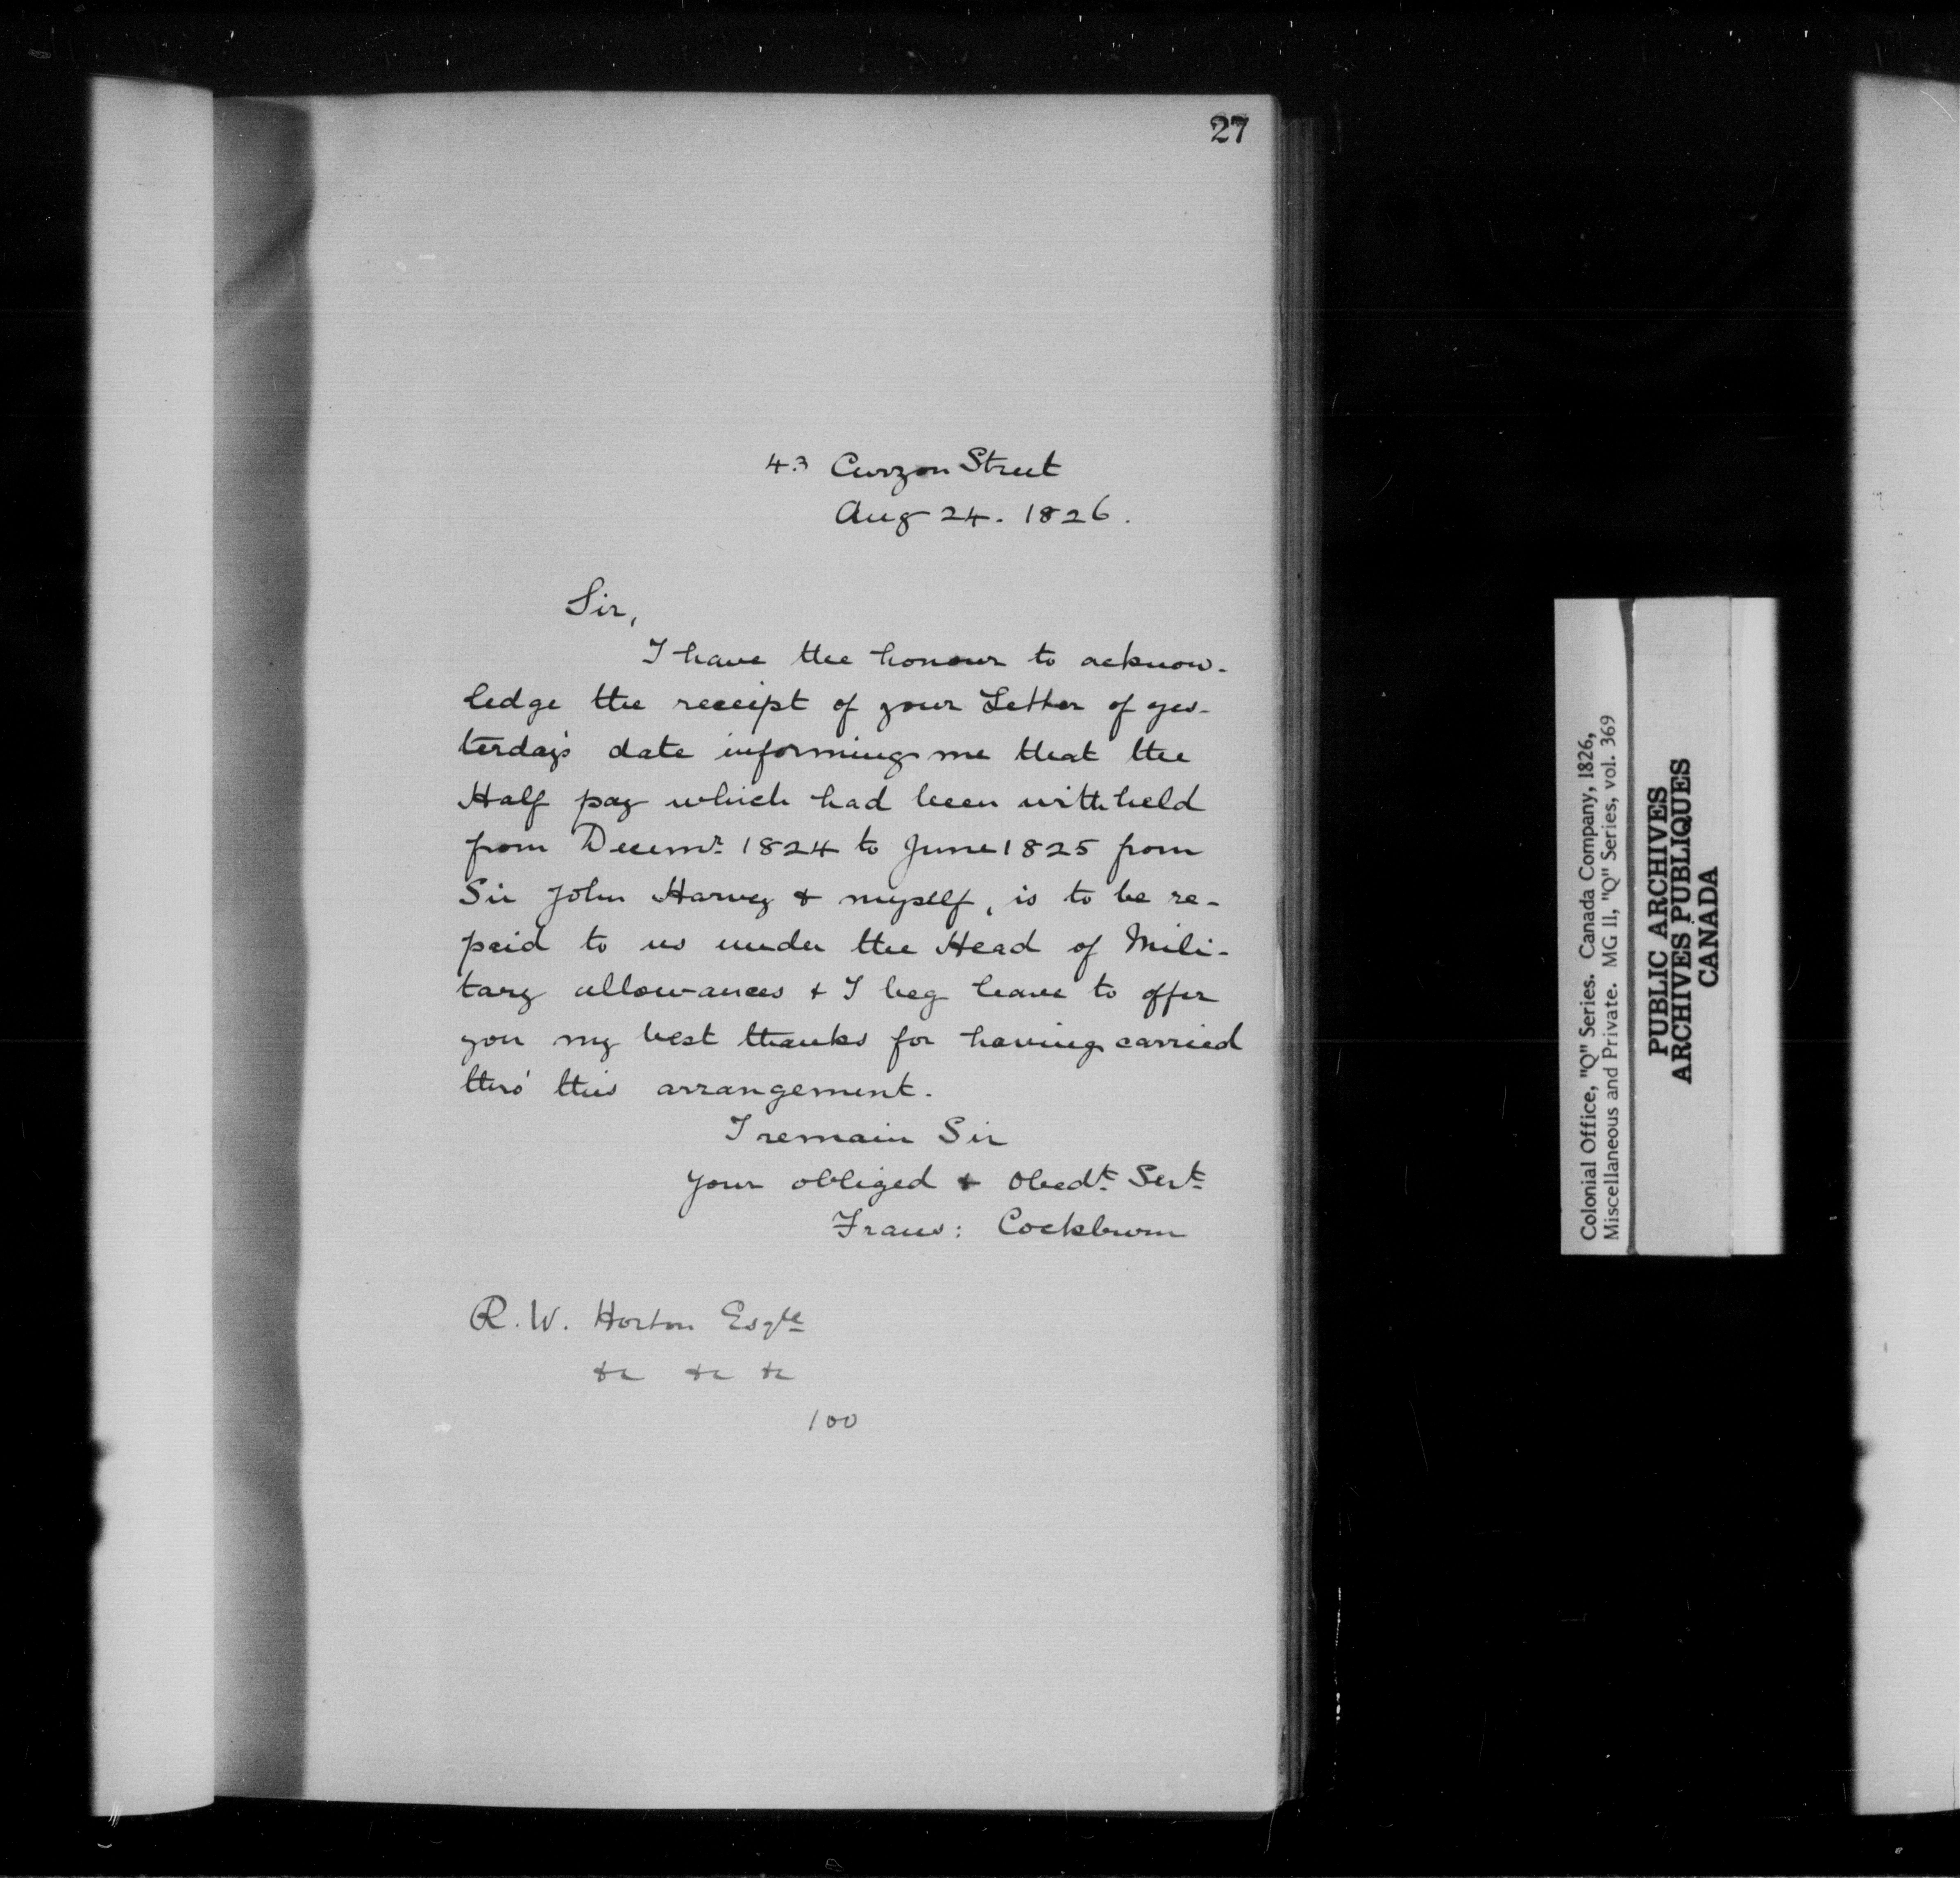 27
43 Curzon Street
Aug 24. 1826.
Sir,
I have the honour to acknow-
ledge the receipt of your Letter of yes-
terday's date informing me that the
Half pay which had been withheld
from Decemr. 1824 to June 1825 from
Sir John Harvey & myself, is to be re-
paid to us under the Head of Mili-
tary allowances & I beg leave to offer
you my best thanks for having carried
thro' this arrangement.
I remain Sir
your obliged & Obedt. Servt.
Frans: Cockburn
R. W. Horton Esqre
&c &c &c
100
Colonial Office, "Q" Series. Canada Company, 1826,
Miscellaneous and Private. MG 11, "Q" Series, vol. 369
PUBLIC ARCHIVES
ARCHIVES PUBLIQUES
CANADA